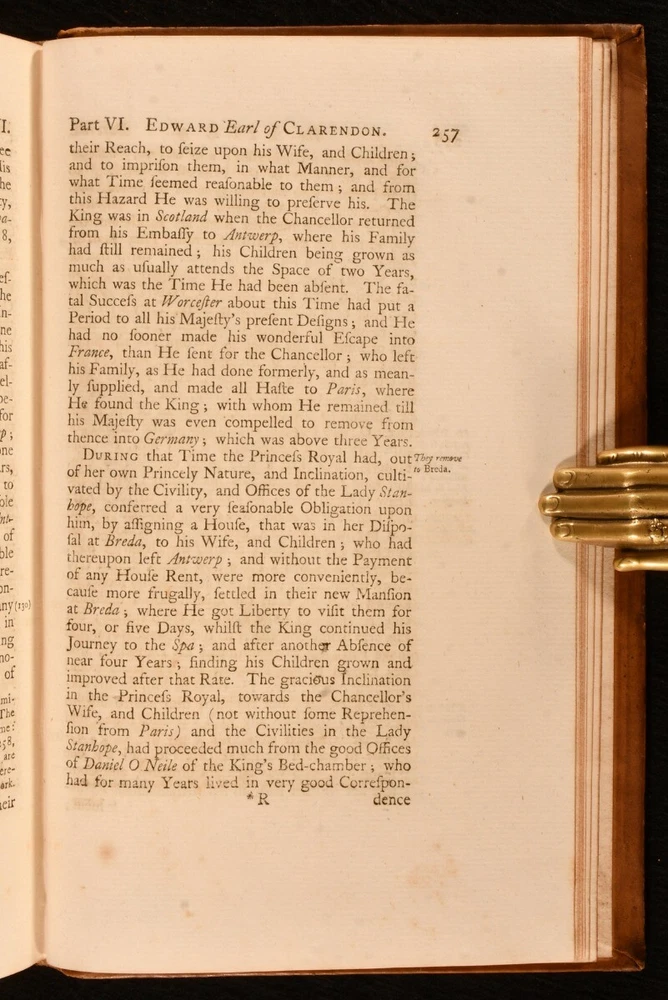 Part VI. EDWARD Earl of CLARENDON. 257
their Reach, to ſeize upon his Wife, and Children;
and to impriſon them, in what Manner, and for
what Time ſeemed reaſonable to them; and from
this Hazard He was willing to preſerve his. The
King was in Scotland when the Chancellor returned
from his Embaſſy to Antwerp, where his Family
had ſtill remained; his Children being grown as
much as uſually attends the Space of two Years,
which was the Time He had been abſent. The fa-
tal Succeſs at Worceſter about this Time had put a
Period to all his Majeſty's preſent Deſigns; and He
had no ſooner made his wonderful Eſcape into
France, than He ſent for the Chancellor; who left
his Family, as He had done formerly, and as mean-
ly ſupplied, and made all Haſte to Paris, where
He found the King; with whom He remained till
his Majeſty was even compelled to remove from
thence into Germany; which was above three Years.
DURING that Time the Princeſs Royal had, out
They remove
to Breda.
of her own Princely Nature, and Inclination, culti-
vated by the Civility, and Offices of the Lady Stan-
hope, conferred a very ſeaſonable Obligation upon
him, by aſſigning a Houſe, that was in her Diſpo-
ſal at Breda, to his Wife, and Children; who had
thereupon left Antwerp; and without the Payment
of any Houſe Rent, were more conveniently, be-
cauſe more frugally, ſettled in their new Manſion
at Breda; where He got Liberty to viſit them for
four, or five Days, whilſt the King continued his
Journey to the Spa; and after another Abſence of
near four Years; finding his Children grown and
improved after that Rate. The gracious Inclination
in the Princeſs Royal, towards the Chancellor's
Wife, and Children (not without ſome Reprehen-
ſion from Paris) and the Civilities in the Lady
Stanhope, had proceeded much from the good Offices
of Daniel O Neile of the King's Bed-chamber; who
had for many Years lived in very good Correſpon-
* R dence